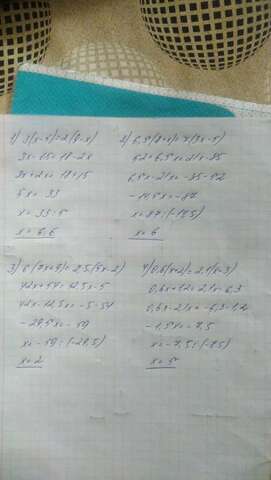 1) 3(x-5)=2(9-x)
3x-15=18-2x
3x+2x=18+15
5x=33
x=33:5
x=6,6
2) 6,5(8+x)=7(3x-5)
52+6,5x=21x-35
6,5x-21x=-35-52
-14,5x=-87
x=-87:(-14,5)
x=6
3) 6(7x+9)=2,5(5x-2)
42x+54=12,5x-5
42x-12,5x=-5-54
-29,5x=-59
x=-59:(-29,5)
x=2
4) 0,6(x+2)=2,1(x-3)
0,6x+1,2=2,1x-6,3
0,6x-2,1x=-6,3-1,2
-1,5x=-7,5
x=-7,5:(-1,5)
x=5